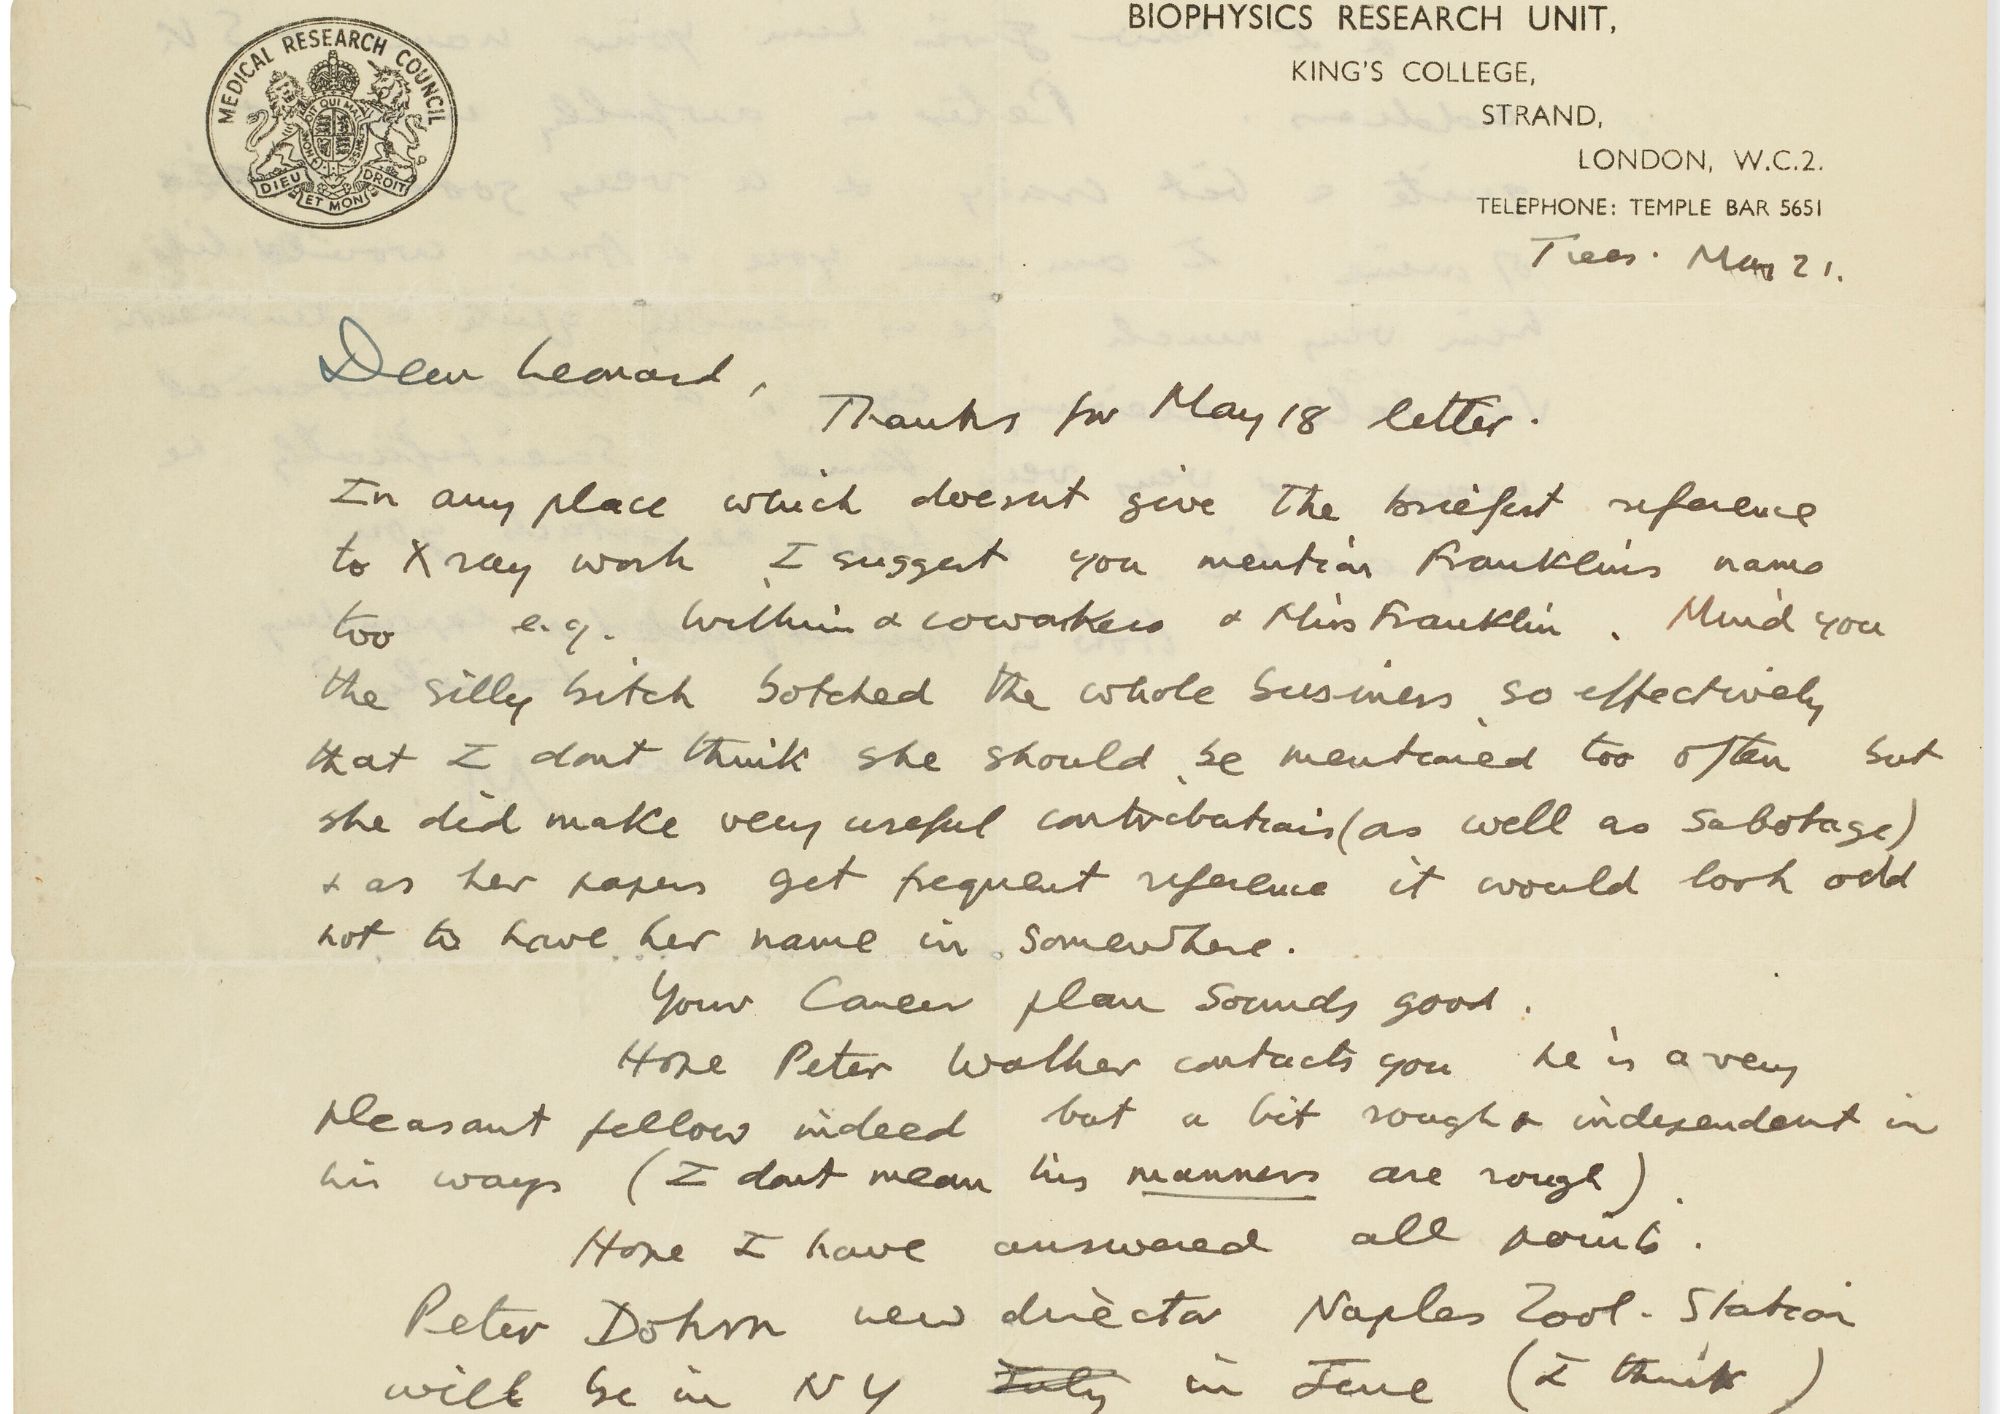 MEDICAL RESEARCH COUNCIL
DIEU ET MON DROIT
BIOPHYSICS RESEARCH UNIT,
KING'S COLLEGE,
STRAND,
LONDON, W.C.2.
TELEPHONE: TEMPLE BAR 5651
Tues. May 21.
Dear Leonard,
Thanks for May 18 letter.
In any place which doesnt give the briefest reference
to X ray work, I suggest you mention Franklins name
too e.g. Wilkins & coworkers & Miss Franklin. Mind you
the silly bitch botched the whole business so effectively
that I dont think she should be mentioned too often but
she did make very useful contributions (as well as sabotage)
& as her papers get frequent reference it would look odd
not to have her name in somewhere.
Your Career plan sounds good.
Hope Peter Walker contacts you he is a very
pleasant fellow indeed but a bit rough & independent in
his ways (I dont mean his manners are rough).
Hope I have answered all points.
Peter Dohrn new director Naples Zool. Station
will be in NY July in June (I think)